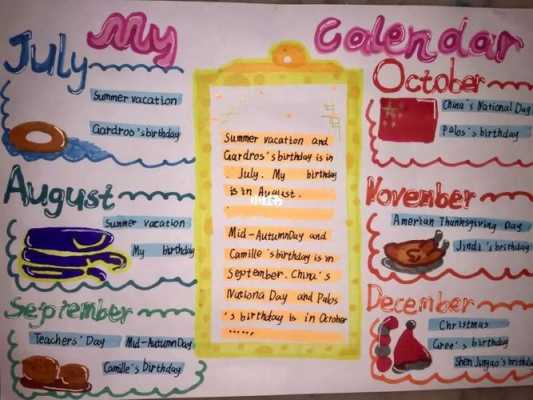 My Calendar
July
Summer vacation
Gardros's birthday
August
Summer vacation
My birthday
September
Teachers' Day Mid-AutumnDay
Camille's birthday
Summer vacation and
Gardros's birthday is in
July. My birthday
is in August.
Mid-AutumnDay and
Camille's birthday is in
September. China's
Nationa Day and Pabs
's birthday is in October
......
October
China's National Day
Palos's birthday
November
Amerian Thanksgiving Day
Jindi's brithday
December
Christmas
Gree's birthday
Shen Jungao's brithday